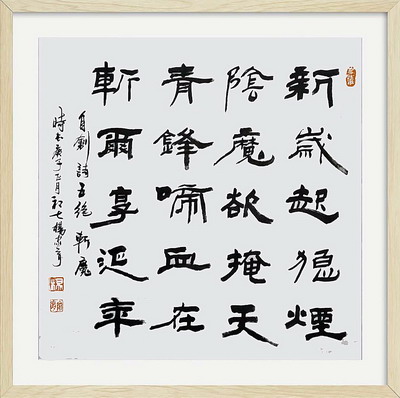 新歲起狼煙
陰魔欲掩天
青鋒啼血在
斬爾享延年
自創詩五絕 斬魔
時在庚子正月初七楊